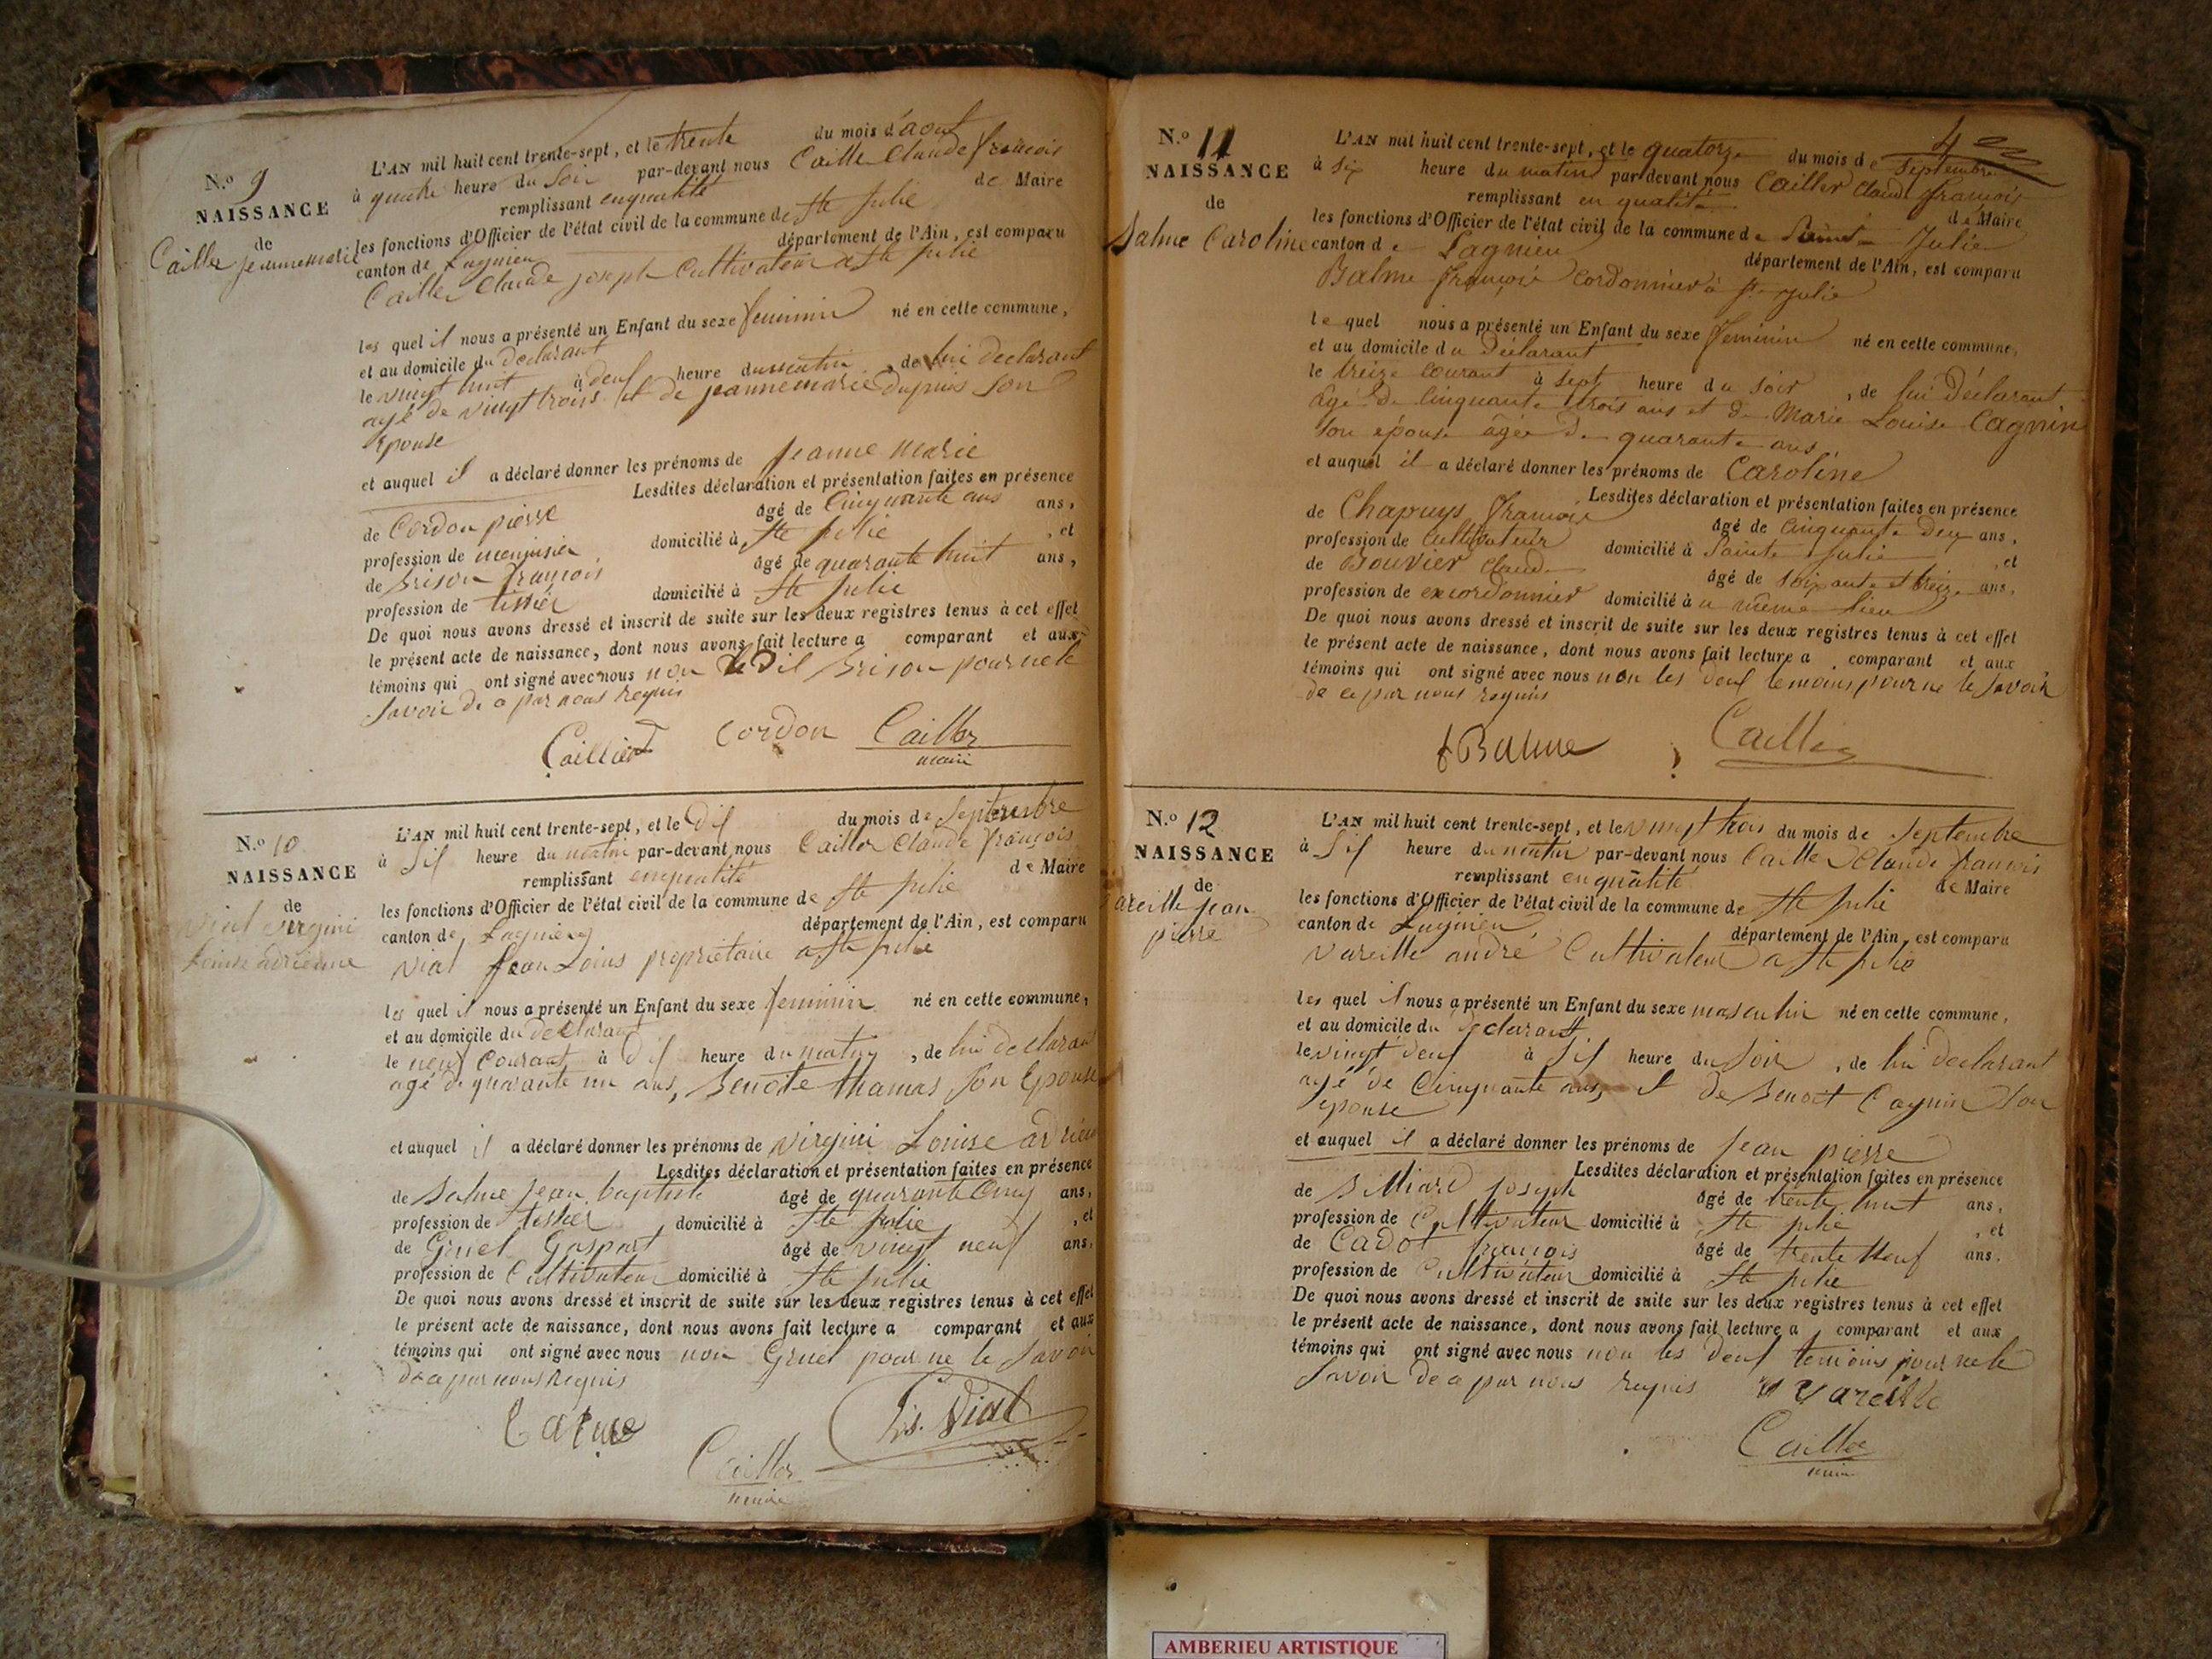 N.o 9
NAISSANCE
de
Cailler jeanne marie
L'AN mil huit cent trente-sept, et le trente du mois d'aout
à quatre heure du Soir par-devant nous Cailler Claude françois
remplissant enqualité de Maire
les fonctions d'Officier de l'état civil de la commune de Ste julie
canton de Lagnieu département de l'Ain, est comparu
Cailler Claude joseph Cultivateur a Ste julie
les quel il nous a présenté un Enfant du sexe feminin né en cette commune,
et au domicile du declarant
le vingt huit à deuf heure du matin, de lui declarant
agé de vingt trois et de jeanne marie dupuis Son
Epouse
et auquel il a déclaré donner les prénoms de jeanne marie
Lesdites déclaration et présentation faites en présence
de Cordon pierre âgé de Cinquante ans ans,
profession de menuisier domicilié à Ste julie, et
de Brison françois âgé de quarante huit ans,
profession de tissier domicilié à Ste julie
De quoi nous avons dressé et inscrit de suite sur les deux registres tenus à cet effet
le présent acte de naissance, dont nous avons fait lecture a comparant et aux
témoins qui ont signé avec nous non Brison pour ne le
Savoir de a par nous requis
Caillier Cordon Cailler
maire
N.o 10
NAISSANCE
de
vial virgini
Louise adrienne
L'AN mil huit cent trente-sept, et le dif du mois de Septembre
à Sif heure du matin par-devant nous Cailler Claude françois
remplissant enqualité de Maire
les fonctions d'Officier de l'état civil de la commune de Ste julie
canton de Lagnieu département de l'Ain, est comparu
vial Jean Louis propriétaire a Ste julie
les quel il nous a présenté un Enfant du sexe feminin né en cette commune,
et au domicile du declarant
le neuf Courant à dif heure du matin, de lui declarant
agé de quarante un ans, Benoite thamas Son Epouse
et auquel il a déclaré donner les prénoms de virgini Louise adrien
Lesdites déclaration et présentation faites en présence
de Balme jean baptiste âgé de quarante Cinq ans,
profession de tissier domicilié à Ste julie, et
de Gruel Gaspart âgé de vingt neuf ans,
profession de Cultivateur domicilié à Ste julie
De quoi nous avons dressé et inscrit de suite sur les deux registres tenus à cet effet
le présent acte de naissance, dont nous avons fait lecture a comparant et aux
témoins qui ont signé avec nous non Gruel pour ne le Savoir
de a par nous Requis
Ls. Vial
Cailler
maire
4
N.o 11
NAISSANCE
de
Balme Caroline
L'AN mil huit cent trente-sept, et le quatorze du mois de Septembre
à six heure du matin par-devant nous Cailler Claude françois
remplissant en qualité de Maire
les fonctions d'Officier de l'état civil de la commune de Sainte Julie
canton de Lagnieu département de l'Ain, est comparu
Balme françois Cordonnier à Ste julie
le quel nous a présenté un Enfant du sexe feminin né en cette commune,
et au domicile du Déclarant
le treize courant à sept heure du soir, de lui Déclarant
âgé de Cinquante trois ans et de Marie Louise Cagnin
son épouse âgée de quarante ans
et auquel il a déclaré donner les prénoms de Caroline
Lesdites déclaration et présentation faites en présence
de Chapuys françois âgé de Cinquante deux ans,
profession de Cultivateur domicilié à Sainte Julie, et
de Bouvier Claude âgé de soixante et treize ans,
profession de excordonnier domicilié à u même lieu
De quoi nous avons dressé et inscrit de suite sur les deux registres tenus à cet effet
le présent acte de naissance, dont nous avons fait lecture a comparant et aux
témoins qui ont signé avec nous non les deuf temoins pour ne le Savoir
de ce par nous requis
fBalme Cailler
N.o 12
NAISSANCE
de
areille jean
pierre
L'AN mil huit cent trente-sept, et le vingt trois du mois de Septembre
à Sif heure du matin par-devant nous Cailler Claude françois
remplissant enqualité de Maire
les fonctions d'Officier de l'état civil de la commune de Ste julie
canton de Lagnieu département de l'Ain, est comparu
Vareille andré Cultivateur a Ste julie
les quel il nous a présenté un Enfant du sexe masculin né en cette commune,
et au domicile du declarant
le vingt deuf à Sif heure du Soir, de lui declarant
agé de Cinquante ans et de Benoit Cagnin Son
epouse
et auquel il a déclaré donner les prénoms de jean pierre
Lesdites déclaration et présentation faites en présence
de Billiard joseph âgé de trente huit ans,
profession de Cultivateur domicilié à Ste julie, et
de Cadot françois âgé de trente Neuf ans,
profession de Cultivateur domicilié à Ste julie
De quoi nous avons dressé et inscrit de suite sur les deux registres tenus à cet effet
le présent acte de naissance, dont nous avons fait lecture a comparant et aux
témoins qui ont signé avec nous non les deuf temoins pour ne le
Savoir de a par nous requis Vareille
Cailler
maire
AMBERIEU ARTISTIQUE